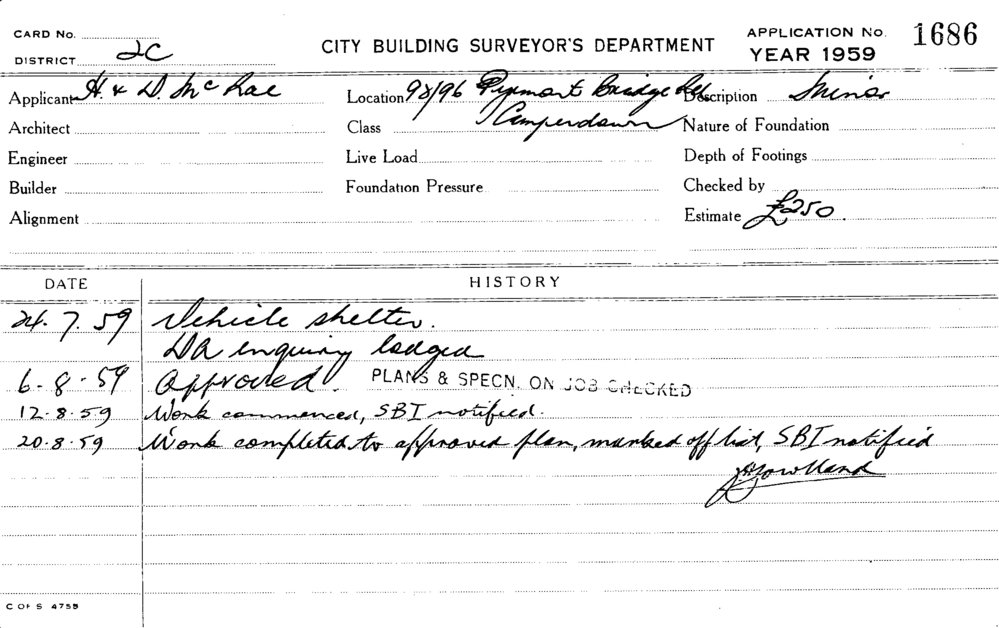 CARD No.
DISTRICT 2C
CITY BUILDING SURVEYOR'S DEPARTMENT
APPLICATION No. 1686
YEAR 1959
Applicant H. & D. McRae
Location 98/96 Pyrmont Bridge Rd
Description Minor
Architect
Class Camperdown
Nature of Foundation
Engineer
Live Load
Depth of Footings
Builder
Foundation Pressure
Checked by
Alignment
Estimate £250.
DATE HISTORY
24.7.59 Vehicle shelter.
DA enquiry lodged
6-8-59 Approved. PLANS & SPECN. ON JOB CHECKED
12.8.59 Work commenced, SBI notified.
20.8.59 Work completed to approved plan, marked off list, SBI notified
C OF S 4755